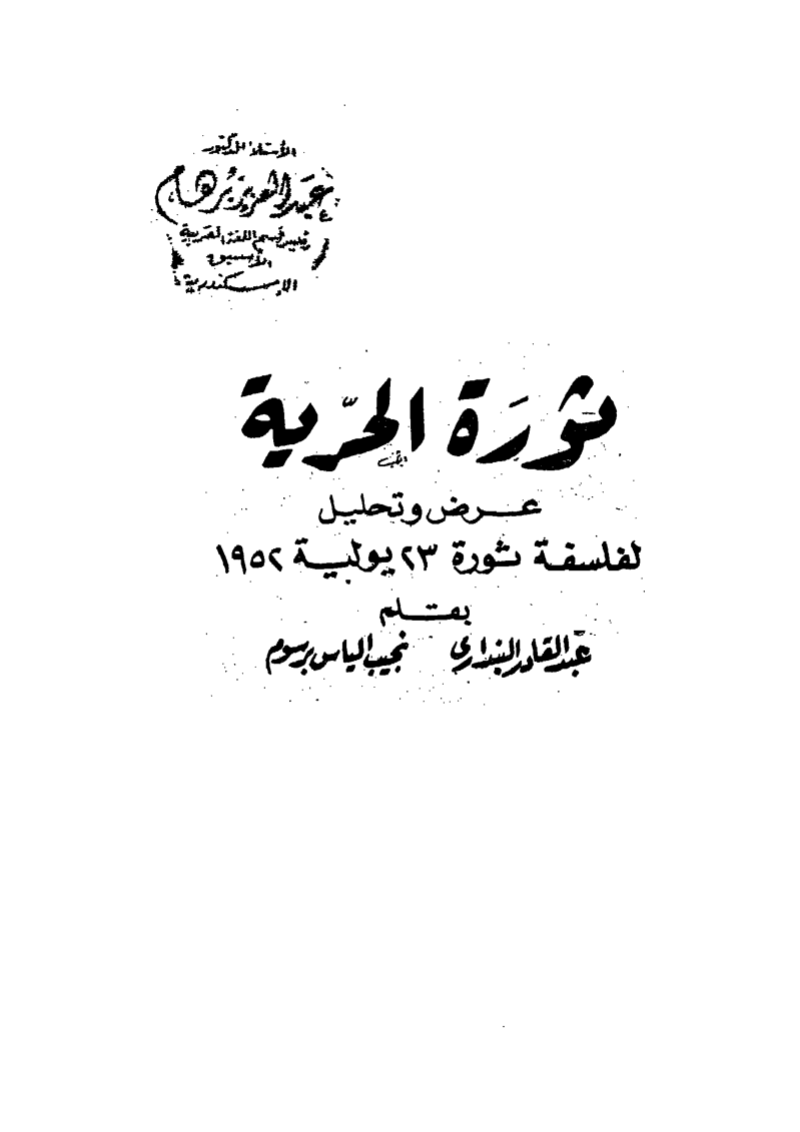 الأستاذ الدكتور
عبد العزيز برهام
رئيس قسم اللغة العربية
الإسكندرية
ثورة الحرّية
عرض وتحليل
لفلسفة ثورة ٢٣ يولية ١٩٥٢
بقلم
عبد القادر البنداري نجيب الياس برسوم